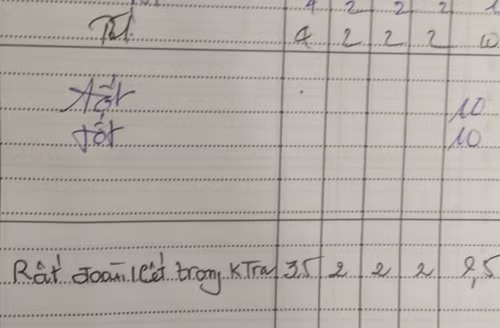 4 2 2 2 1
Tốt 4 2 2 2 10
10
tốt 10
Rất đoàn kết trong KTra 3,5 2 2 2 9,5